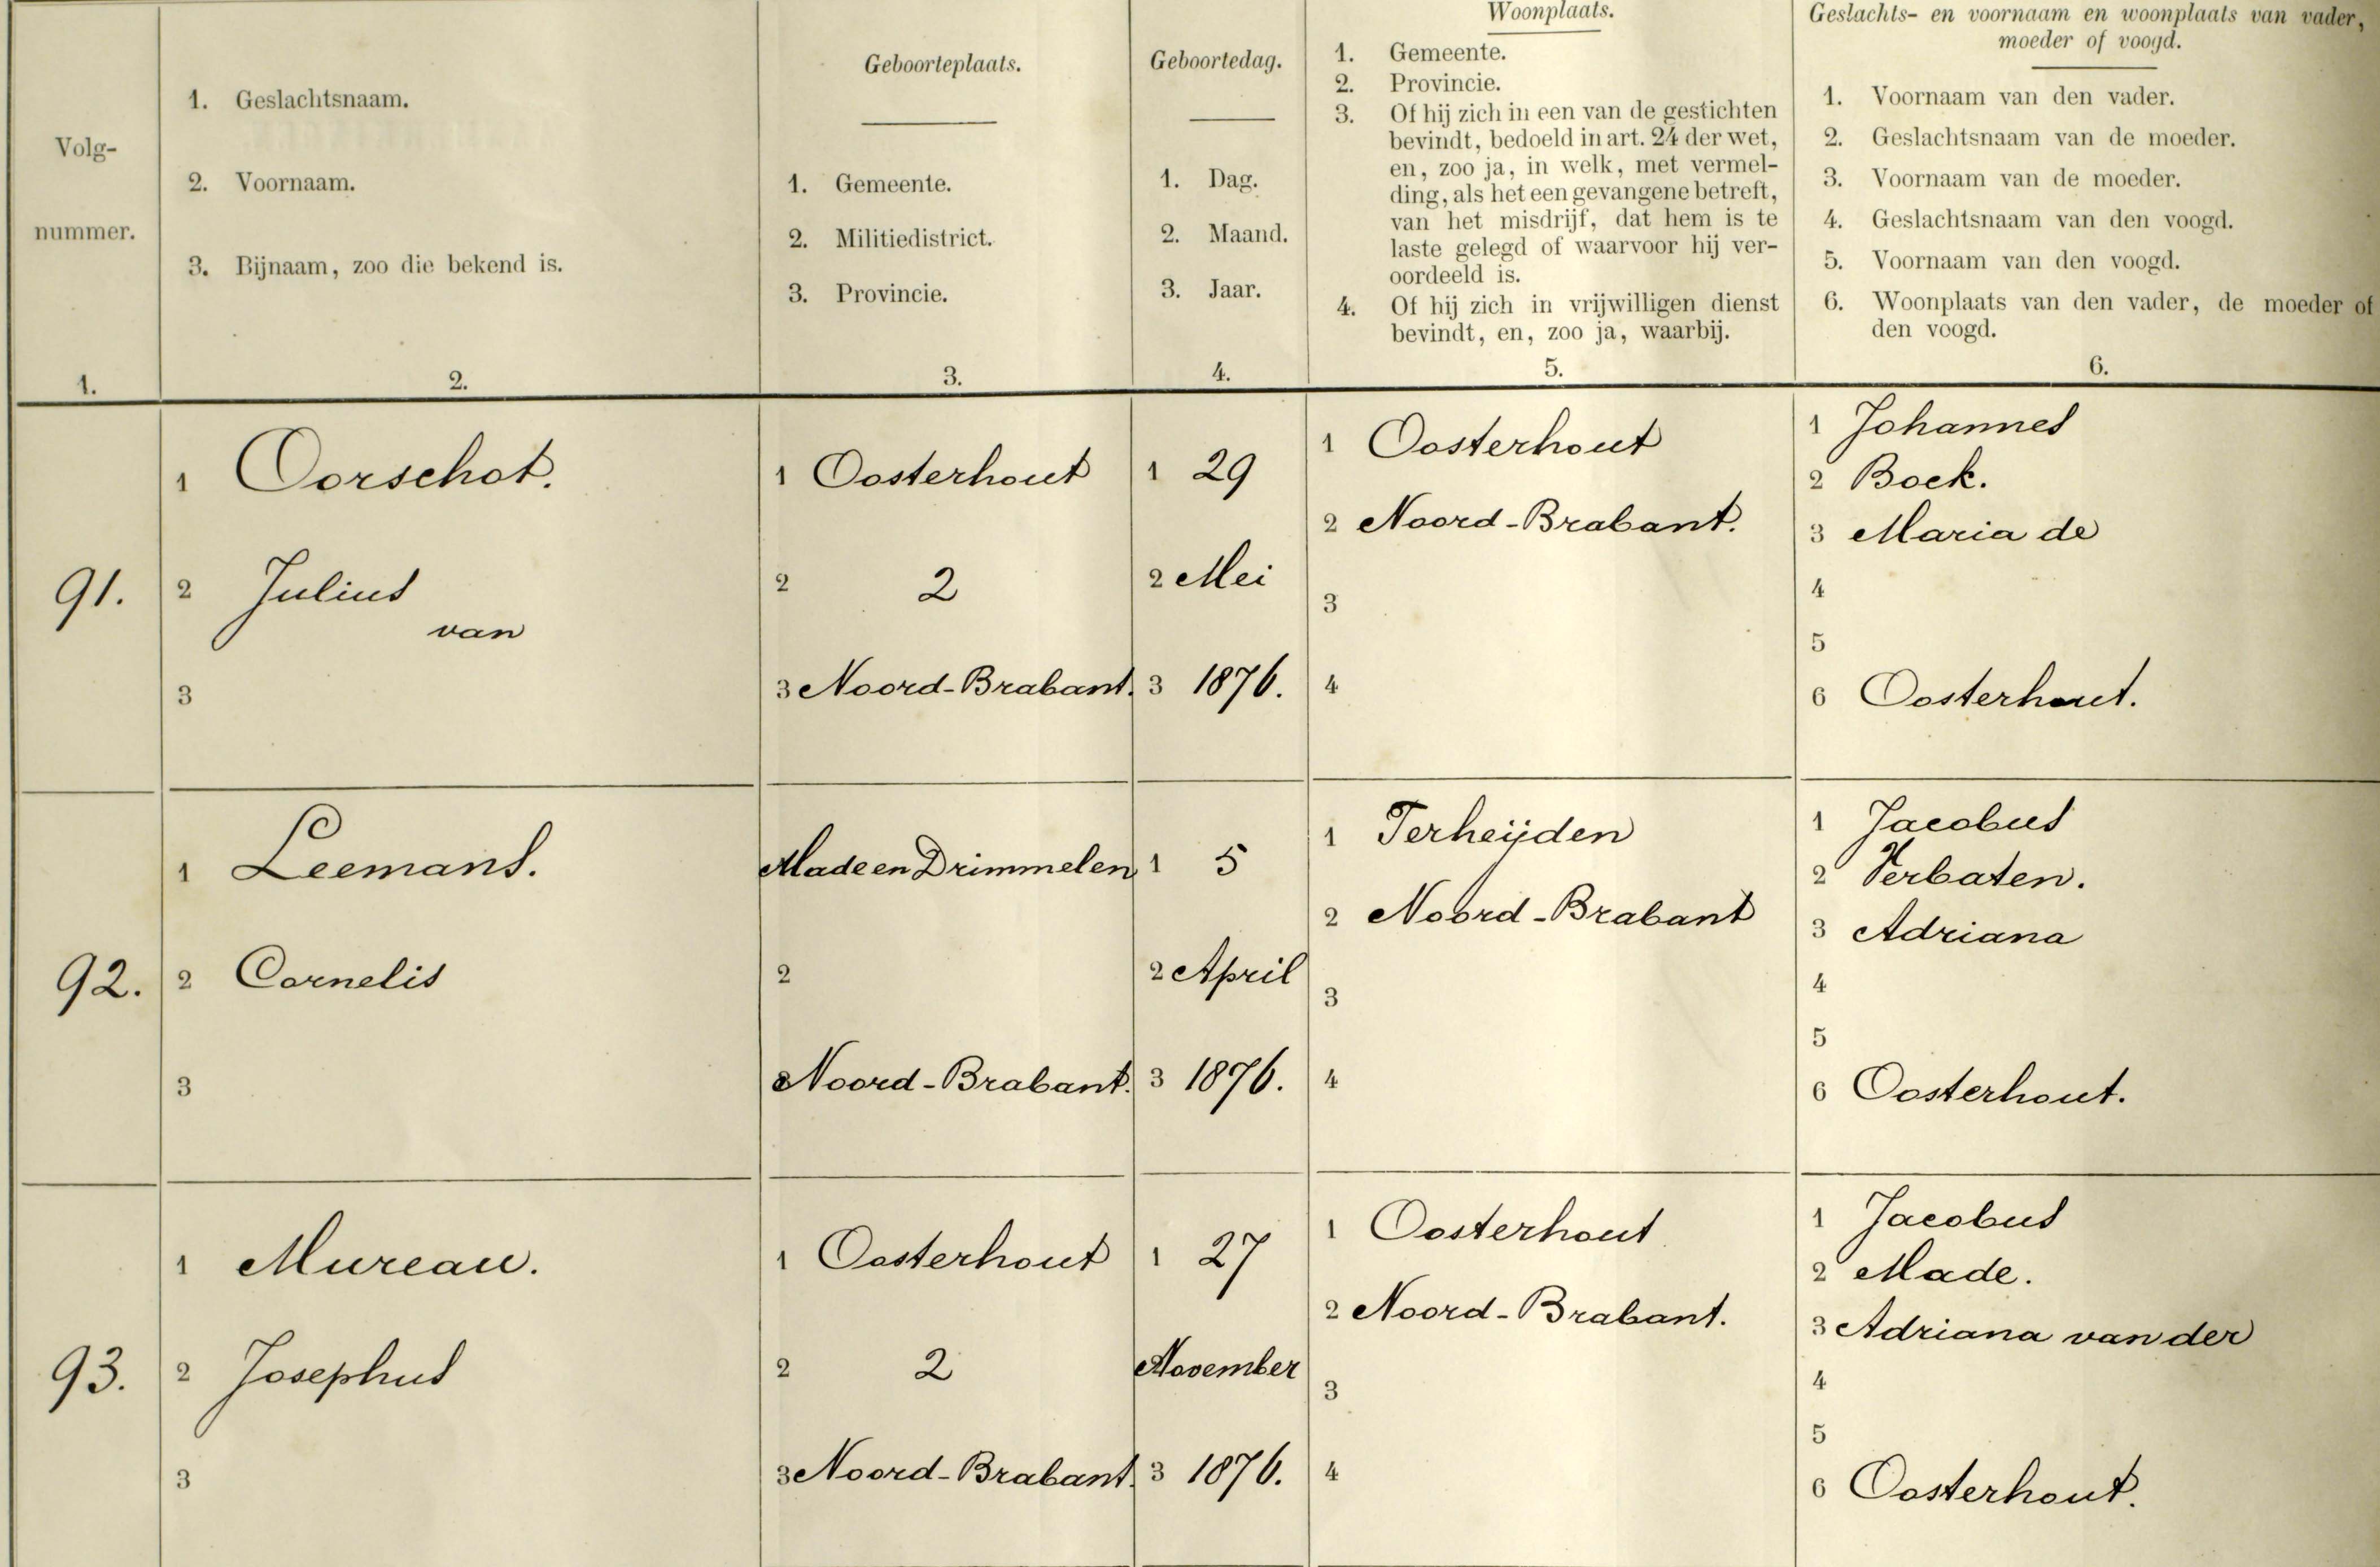 Volg-
nummer.
1.
1. Geslachtsnaam.
2. Voornaam.
3. Bijnaam, zoo die bekend is.
2.
Geboorteplaats.
1. Gemeente.
2. Militiedistrict.
3. Provincie.
3.
Geboortedag.
1. Dag.
2. Maand.
3. Jaar.
4.
Woonplaats.
1. Gemeente.
2. Provincie.
3. Of hij zich in een van de gestichten
bevindt, bedoeld in art. 24 der wet,
en, zoo ja, in welk, met vermel-
ding, als het een gevangene betreft,
van het misdrijf, dat hem is te
laste gelegd of waarvoor hij ver-
oordeeld is.
4. Of hij zich in vrijwilligen dienst
bevindt, en, zoo ja, waarbij.
5.
Geslachts- en voornaam en woonplaats van vader,
moeder of voogd.
1. Voornaam van den vader.
2. Geslachtsnaam van de moeder.
3. Voornaam van de moeder.
4. Geslachtsnaam van den voogd.
5. Voornaam van den voogd.
6. Woonplaats van den vader, de moeder of
den voogd.
6.
91.
1 Oorschot.
2 Julius
van
3
1 Oosterhout
2 2
3 Noord-Brabant.
1 29
2 Mei
3 1876.
1 Oosterhout
2 Noord-Brabant.
3
4
1 Johannes
2 Bock.
3 Maria de
4
5
6 Oosterhout.
92.
1 Leemans.
2 Cornelis
3
Made en Drimmelen
2
3 Noord-Brabant.
1 5
2 April
3 1876.
1 Terheijden
2 Noord-Brabant
3
4
1 Jacobus
2 Verbaten.
3 Adriana
4
5
6 Oosterhout.
93.
1 Mureau.
2 Josephus
3
1 Oosterhout
2 2
3 Noord-Brabant.
1 27
November
3 1876.
1 Oosterhout
2 Noord-Brabant.
3
4
1 Jacobus
2 Made.
3 Adriana van der
4
5
6 Oosterhout.